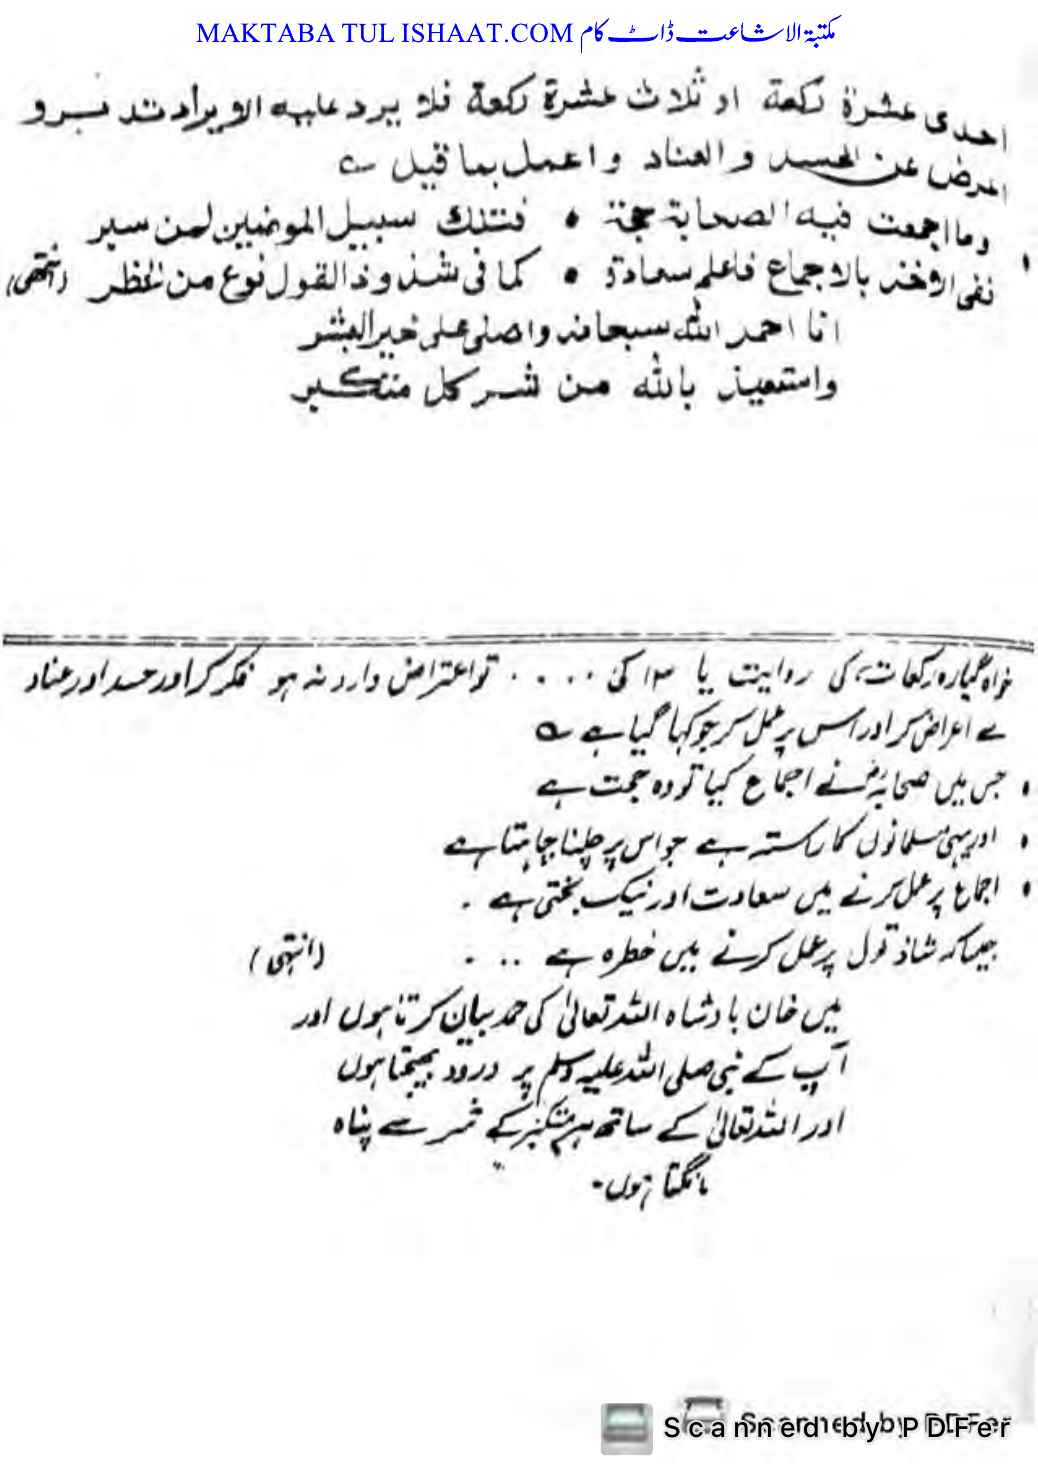 MAKTABA TUL ISHAAT.COM مکتبۃ الاشاعت ڈاٹ کام
احدى عشرة ركعة او ثلاث عشرة ركعة فلا يرد عليه الايراد تدبرو
اعرض عن الحسد والعناد واعمل بما قيل ے
وما اجمعت فيه الصحابة حجة • فتلك سبيل المومنين لمن سبر
ففى الاخذ بالاجماع فاعلم سعادة • كما فى شذوذ القول نوع من الخطر (انتهى)
انا احمد الله سبحانه واصلى على خير البشر
واستعيذ بالله من شر كل متكبر
خواہ گیارہ رکعات کی روایت یا ۱۳ کی ۰ ۰ ۰ ۰ ۰ تو اعتراض وارد نہ ہو فکر کر اور حسد اور عناد
سے اعراض کر اور اس پر عمل کر جو کہا گیا ہے ے
• جس میں صحابہؓ نے اجماع کیا تو وہ حجت ہے
• اور یہی مسلمانوں کا راستہ ہے جو اس پر چلنا چاہتا ہے
• اجماع پر عمل کرنے میں سعادت اور نیک بختی ہے ۔
جیسا کہ شاذ قول پر عمل کرنے میں خطرہ ہے ۰ ۰ ۔ (انتہی)
میں خان بادشاہ اللہ تعالیٰ کی حمد بیان کرتا ہوں اور
آپ کے نبی صلی اللہ علیہ وسلم پر درود بھیجتا ہوں
اور اللہ تعالیٰ کے ساتھ ہر متکبر کے شر سے پناہ
مانگتا ہوں۔
Scanned by PDFer